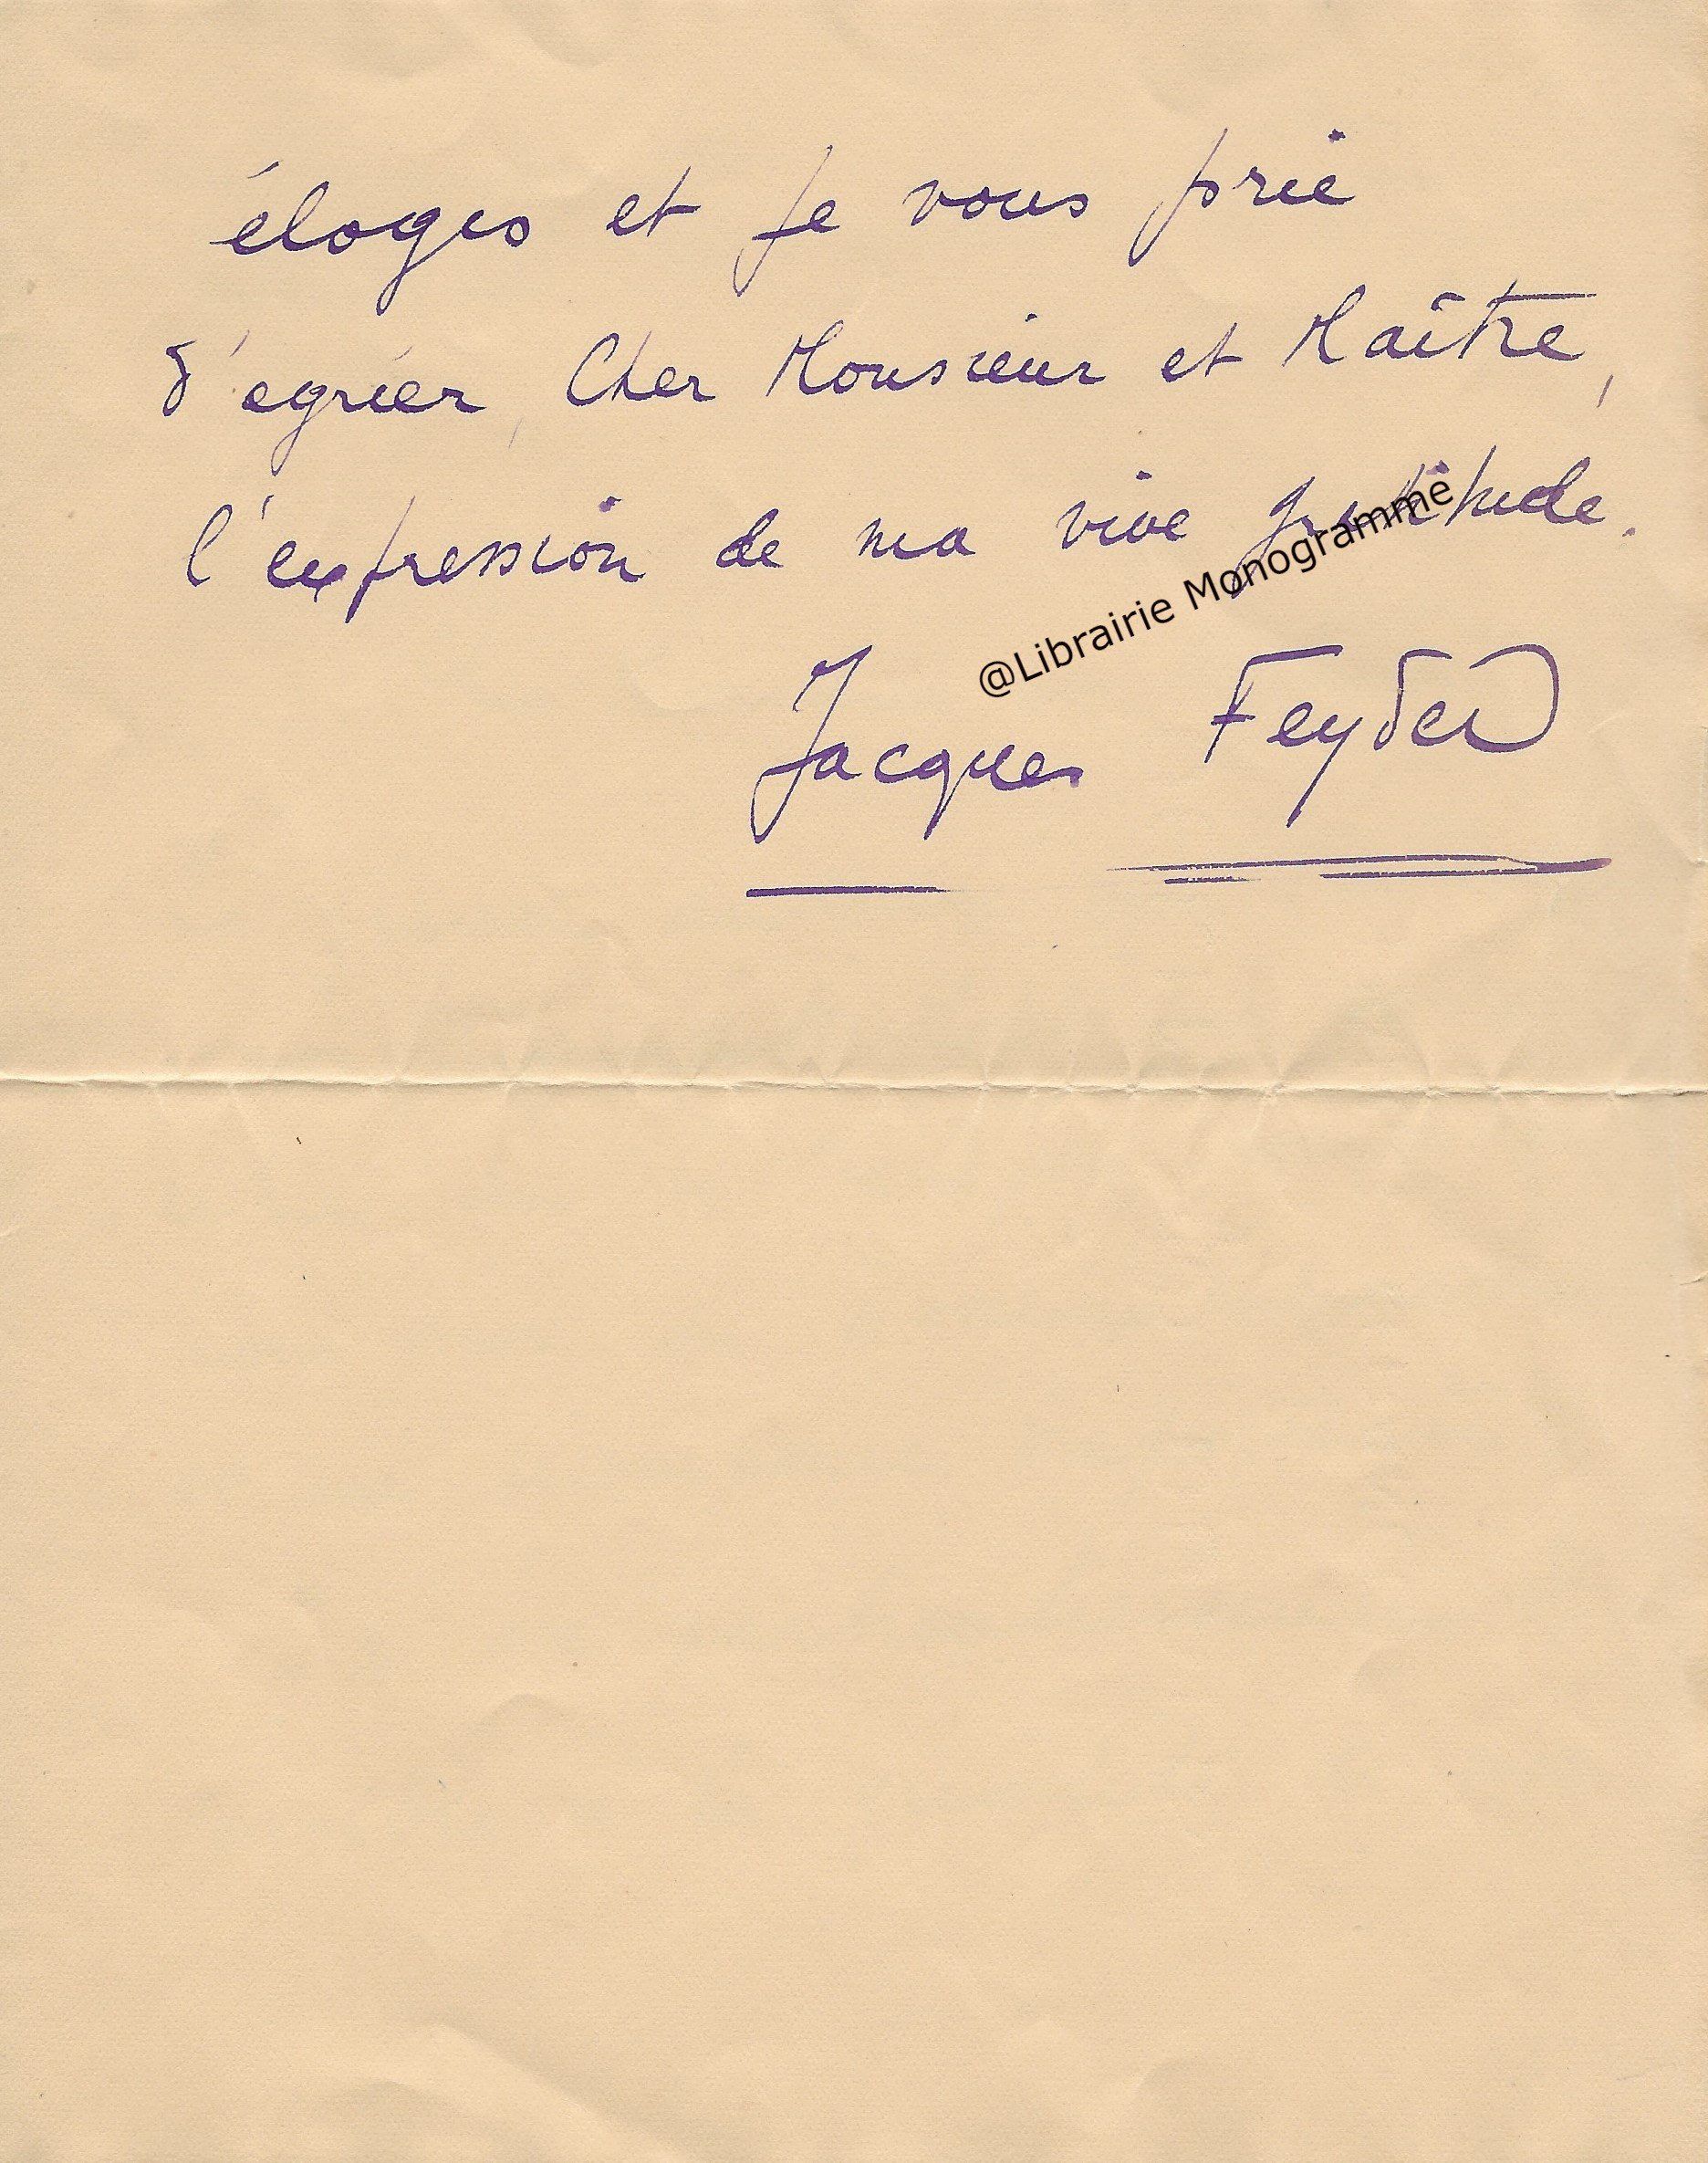 éloges et je vous prie
d'agréer, Cher Monsieur et Maître,
l'expression de ma vive gratitude.
@Librairie Monogramme
Jacques Feyder